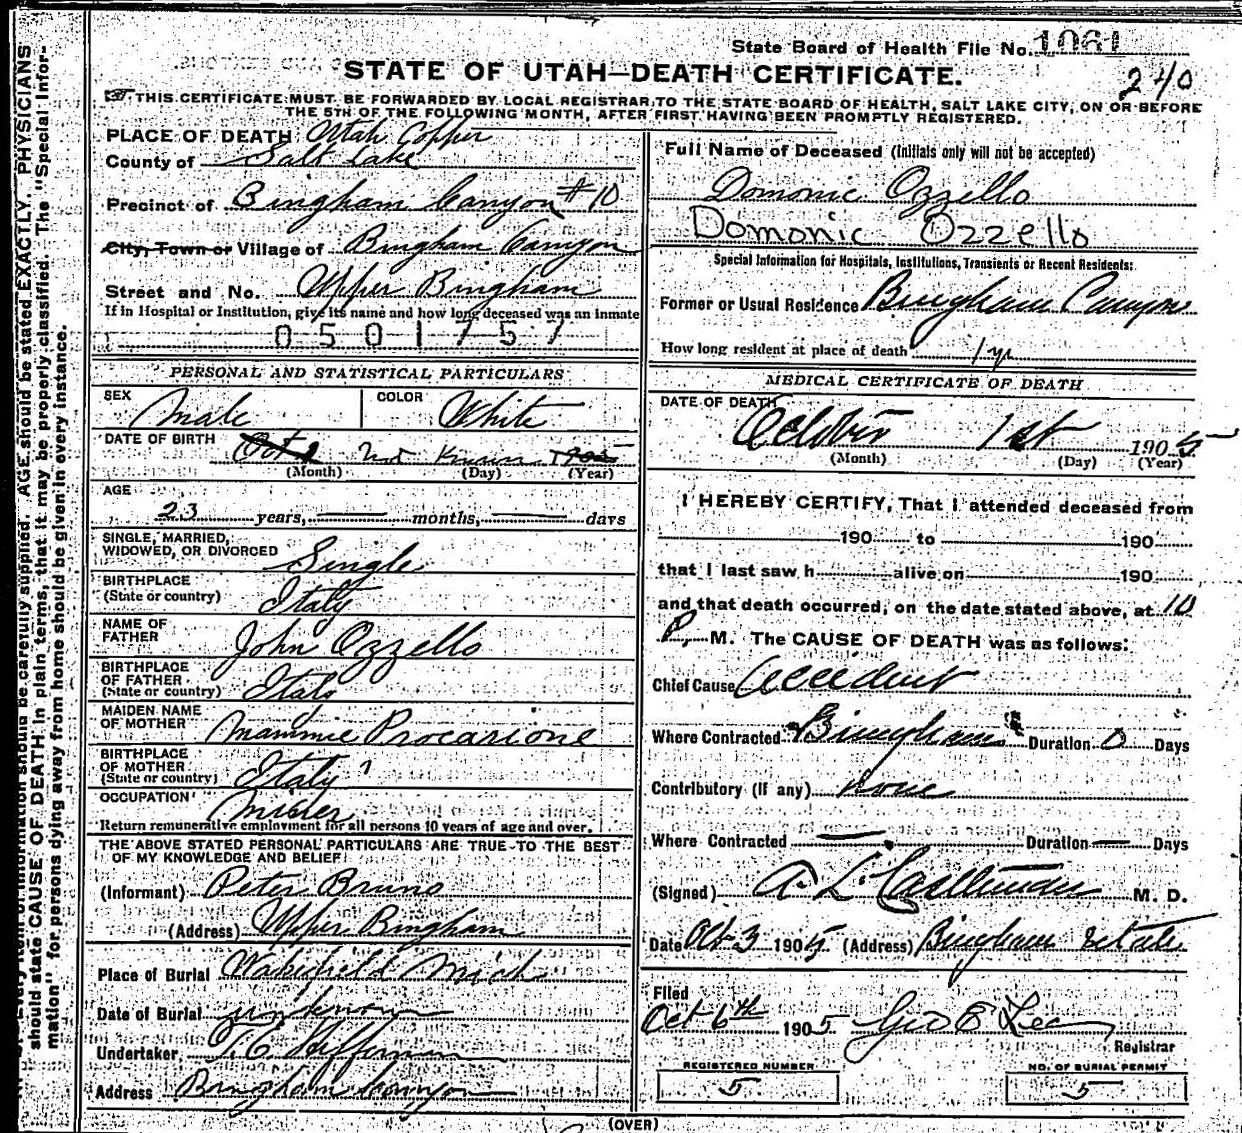 State Board of Health File No. 1061
240
STATE OF UTAH—DEATH CERTIFICATE.
THIS CERTIFICATE MUST BE FORWARDED BY LOCAL REGISTRAR TO THE STATE BOARD OF HEALTH, SALT LAKE CITY, ON OR BEFORE
THE 5TH OF THE FOLLOWING MONTH, AFTER FIRST HAVING BEEN PROMPTLY REGISTERED.
should be carefully supplied. AGE should be stated EXACTLY. PHYSICIANS
should state CAUSE OF DEATH in plain terms, that it may be properly classified. The "Special Infor-
mation" for persons dying away from home should be given in every instance.
PLACE OF DEATH Utah Copper
County of Salt Lake
Precinct of Bingham Canyon #10
City, Town or Village of Bingham Canyon
Street and No. Upper Bingham
If in Hospital or Institution, give its name and how long deceased was an inmate
0501757
PERSONAL AND STATISTICAL PARTICULARS
SEX Male COLOR White
DATE OF BIRTH Oct Not Known 1905
(Month) (Day) (Year)
AGE
23 years, months, days
SINGLE, MARRIED,
WIDOWED, OR DIVORCED Single
BIRTHPLACE
(State or country) Italy
NAME OF
FATHER John Ozzello
BIRTHPLACE
OF FATHER
(State or country) Italy
MAIDEN NAME
OF MOTHER Mammie Procarione
BIRTHPLACE
OF MOTHER
(State or country) Italy
OCCUPATION Miner
Return remunerative employment for all persons 10 years of age and over.
THE ABOVE STATED PERSONAL PARTICULARS ARE TRUE TO THE BEST
OF MY KNOWLEDGE AND BELIEF
(Informant) Peter Bruno
(Address) Upper Bingham
Place of Burial Wakefield Mich
Date of Burial unknown
Undertaker Heffernan
Address Bingham Canyon
Full Name of Deceased (Initials only will not be accepted)
Domonic Ozzello
Domonic Ozzello
Special Information for Hospitals, Institutions, Transients or Recent Residents:
Former or Usual Residence Bingham Canyon
How long resident at place of death 1 yr
MEDICAL CERTIFICATE OF DEATH
DATE OF DEATH October 1st 1905
(Month) (Day) (Year)
I HEREBY CERTIFY, That I attended deceased from
190 to 190
that I last saw h alive on 190
and that death occurred, on the date stated above, at 10
P. M. The CAUSE OF DEATH was as follows:
Chief Cause Accident
Where Contracted Bingham Duration 0 Days
Contributory (if any) None
Where Contracted Duration Days
(Signed) A. L. M. D.
Date Oct 3 1905 (Address) Bingham
Filed
Oct 6th 1905 Geo E Lee
Registrar
REGISTERED NUMBER
5
NO. OF BURIAL PERMIT
5
(OVER)